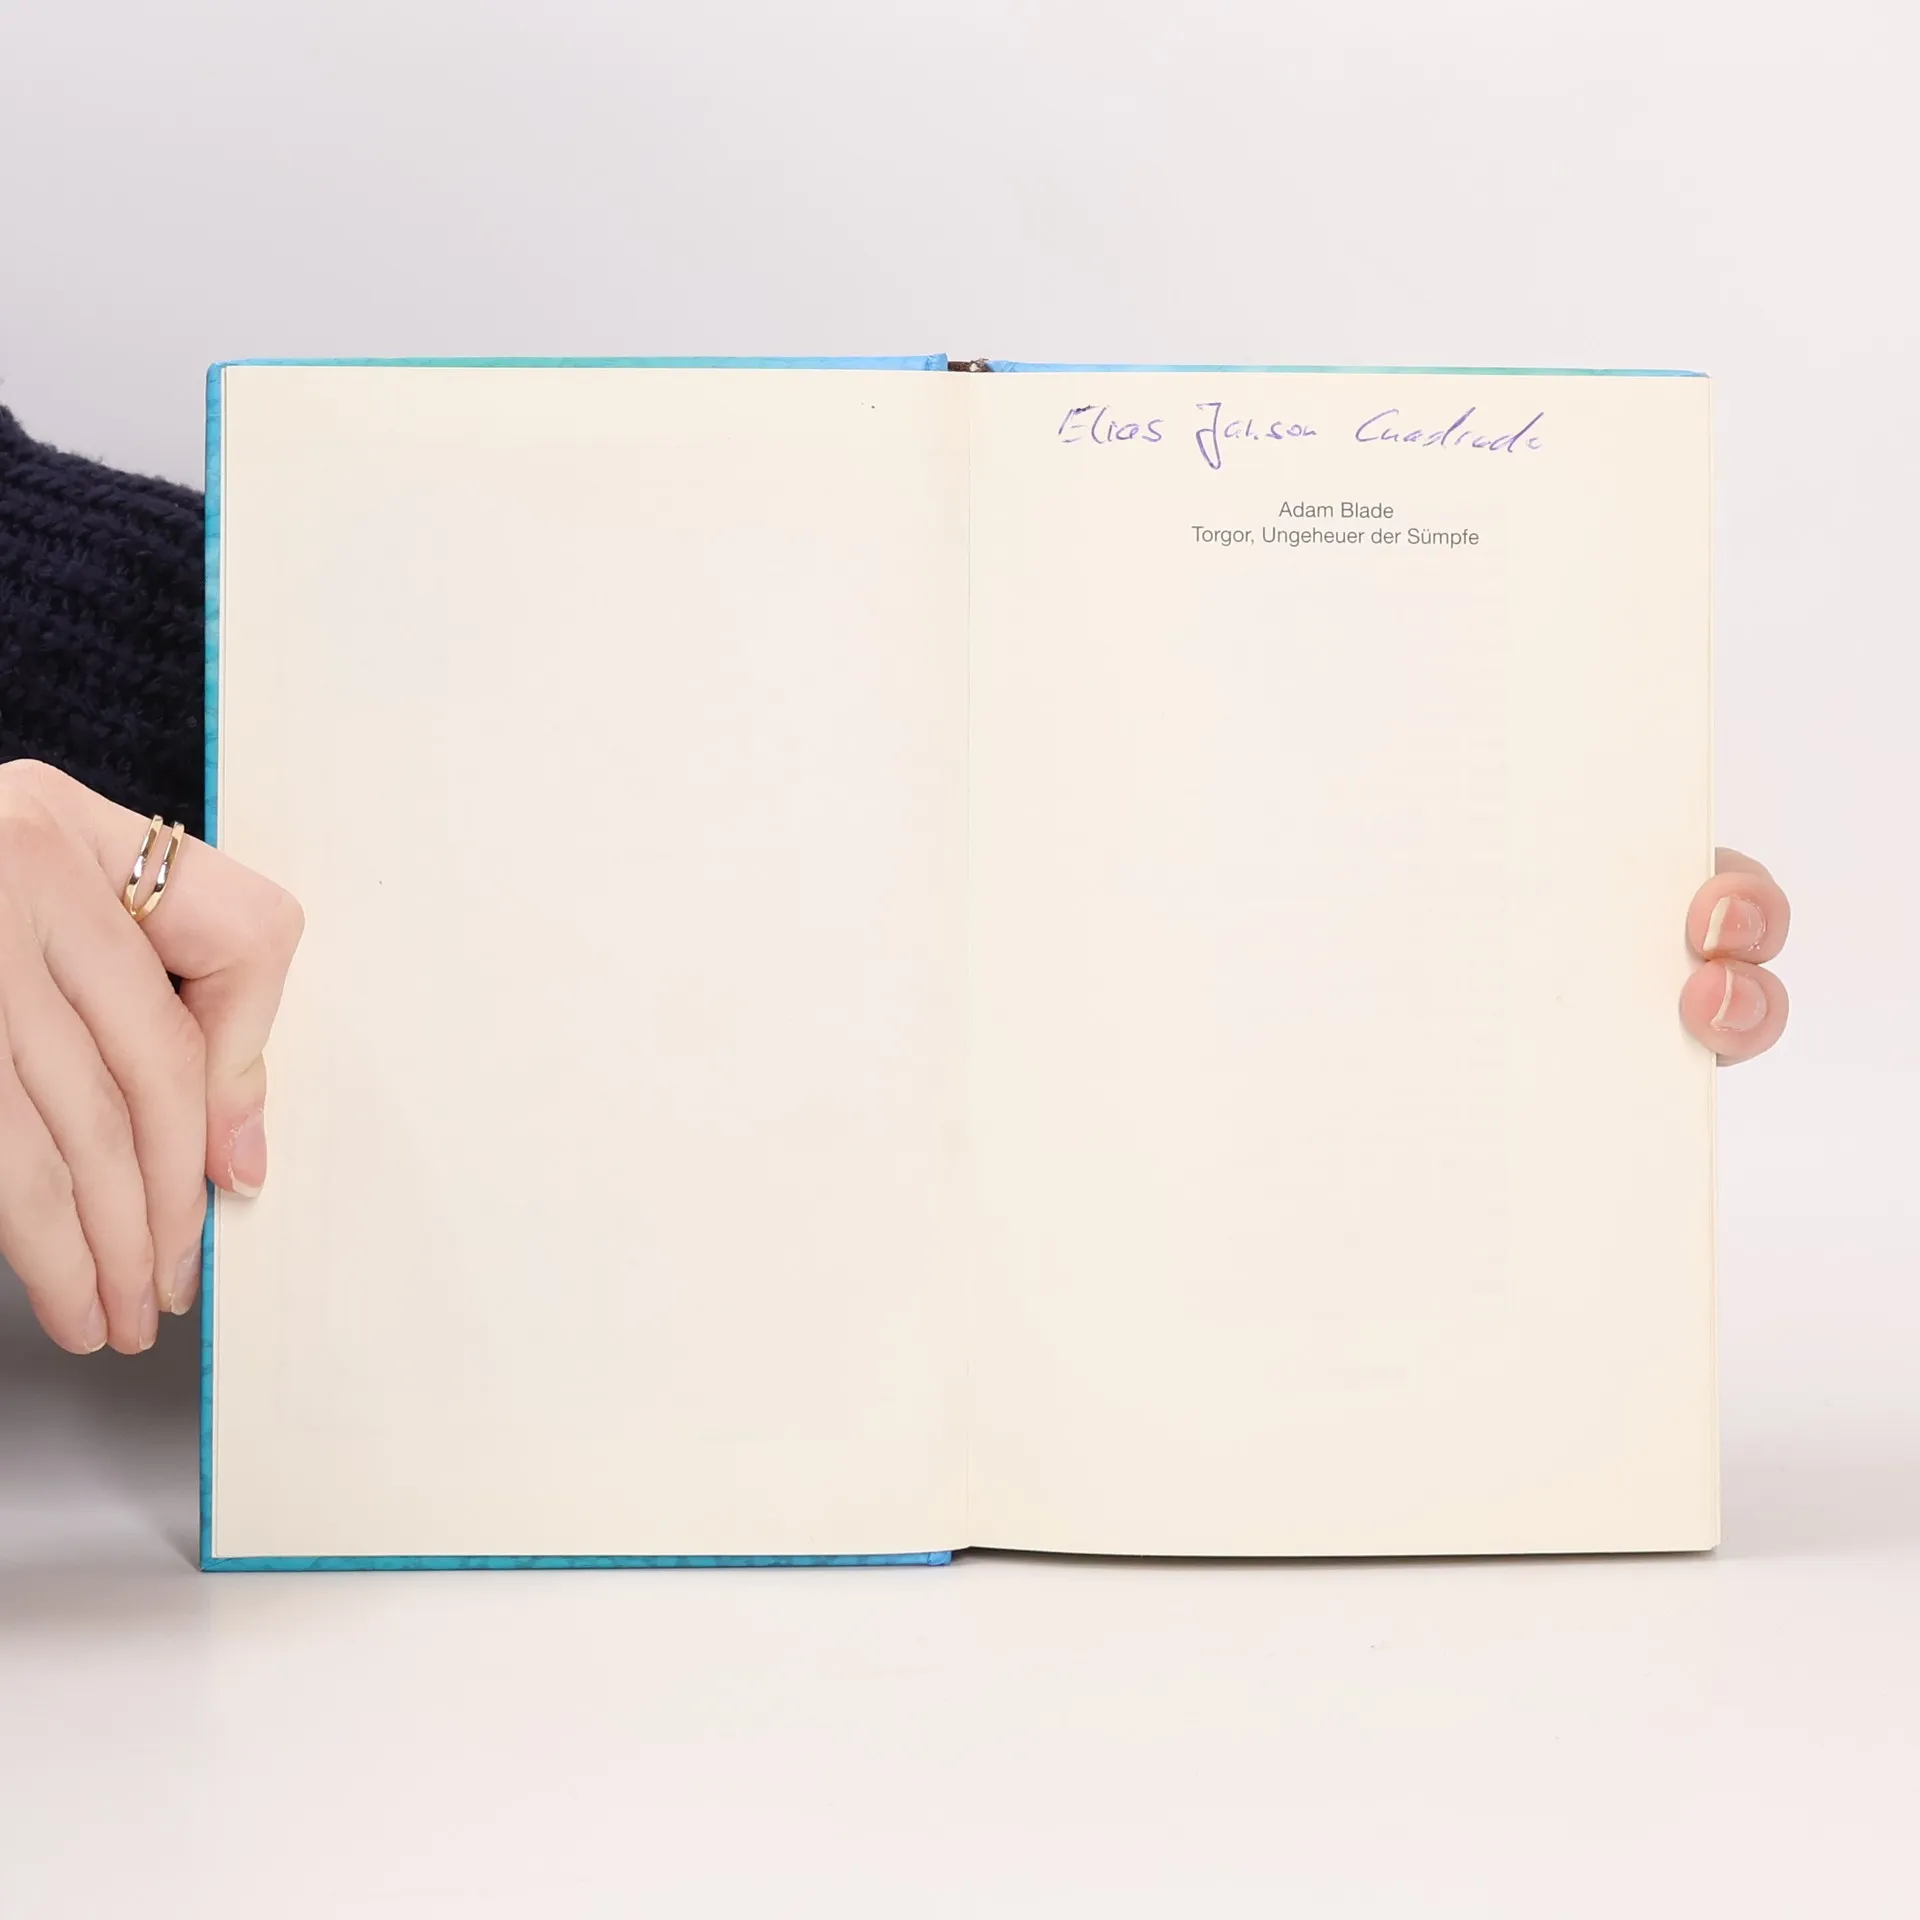 Elias Janson Cuadrado
Adam Blade
Torgor, Ungeheuer der Sümpfe